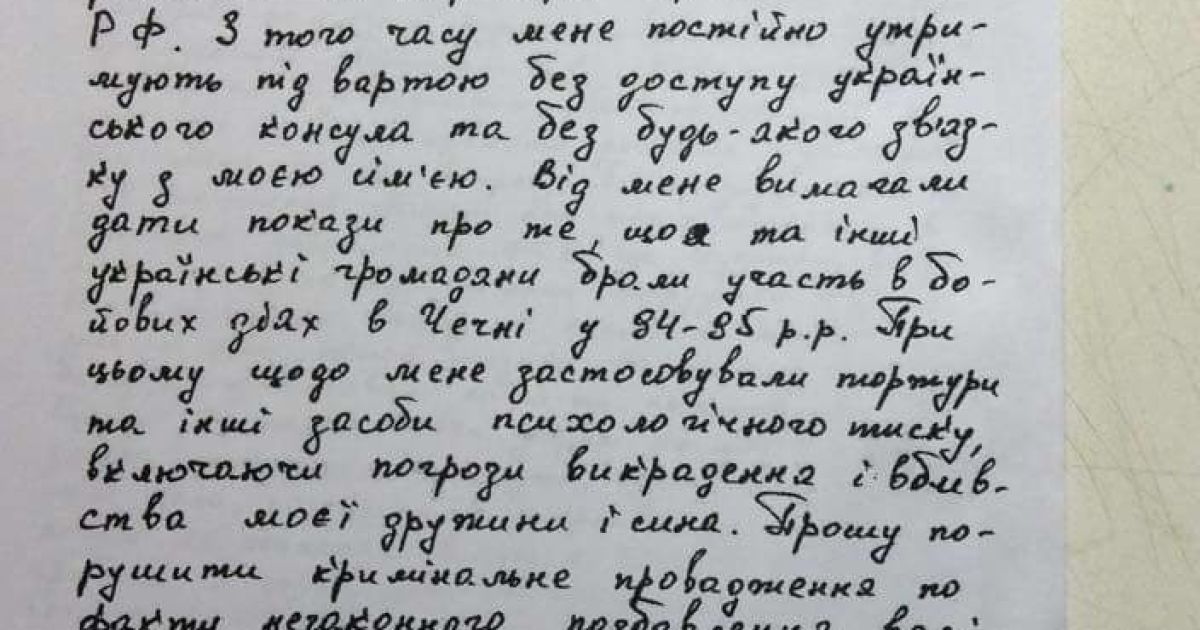 РФ. З того часу мене постійно утри-
мують під вартою без доступу україн-
ського консула та без будь-якого зв'яз-
ку з моєю сім'єю. Від мене вимагали
дати покази про те, що я та інші
українські громадяни брали участь в бо-
йових діях в Чечні у 94-95 р.р. При
цьому щодо мене застосовували тортури
та інші засоби психологічного тиску,
включаючи погрози викрадення і вбив-
ства моєї дружини і сина. Прошу по-
рушити кримінальне провадження по
факту незаконного позбавлення волі